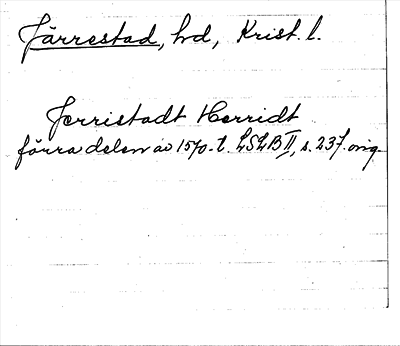 Järrestad, hd, Krist. l.
Jerristadt Herridt
förra delen av 1570-t. LSLB II, s. 237. orig.